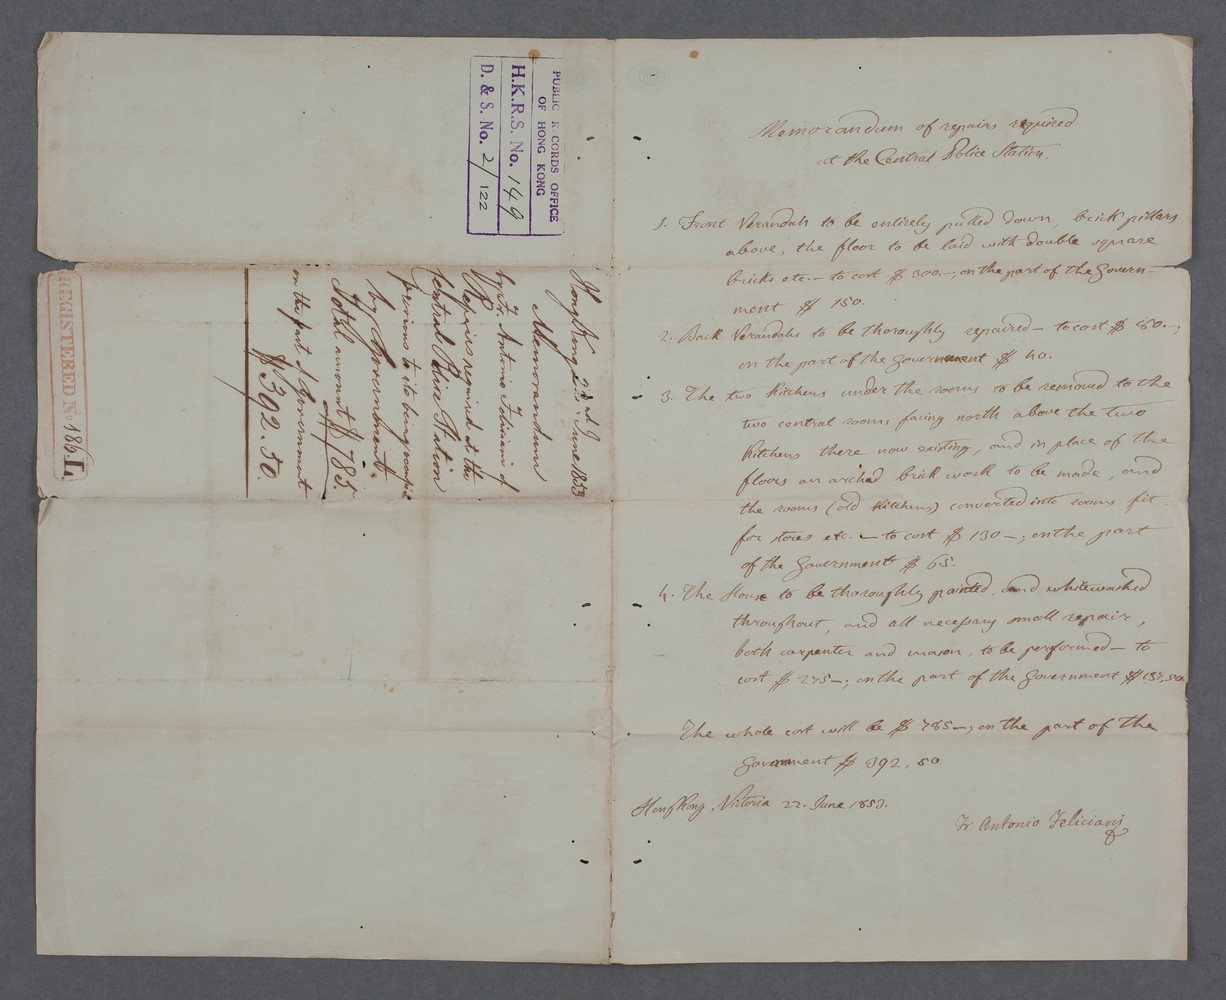 PUBLIC RECORDS OFFICE
OF HONG KONG
H.K.R.S. No. 149
D. & S. No. 2/122
Hong Kong 22nd June 1853
Memorandum
by Fr. Antonio Feliciani of
Repairs required at the
Central Police Station
previous to its being occupied
by Government.
Total amount $ 785.
on the part of Government
$ 392.50.
REGISTERED No 186
Memorandum of repairs required
at the Central Police Station.
1. Front Verandah to be entirely pulled down, brick pillars
above, the floor to be laid with double square
bricks etc. – to cost $ 300.–; on the part of the Govern-
ment $ 150.
2. Back Verandahs to be thoroughly repaired – to cost $ 80.–;
on the part of the Government $ 40.
3. The two Kitchens under the rooms to be removed to the
two central rooms facing north above the two
Kitchens there now existing, and in place of the
floors an arched brick work to be made, and
the rooms (old Kitchens) converted into rooms fit
for stores etc. – to cost $ 130 –; on the part
of the Government $ 65.
4. The House to be thoroughly painted, and whitewashed
throughout, and all necessary small repair,
both carpenter and mason, to be performed – to
cost $ 275 –; on the part of the Government $ 137,50
The whole cost will be $ 785 –; on the part of the
Government $ 392,50.
Hong Kong, Victoria 22. June 1853.
Fr Antonio Feliciani